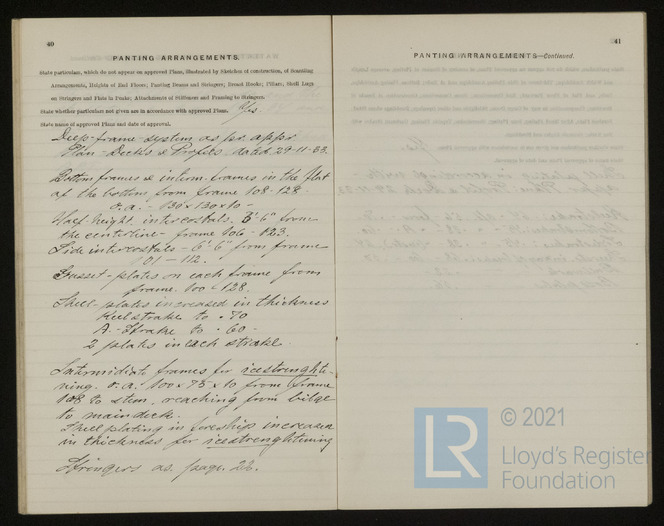 40
PANTING ARRANGEMENTS.
State particulars, which do not appear on approved Plans, illustrated by Sketches of construction, of Scantling
Arrangements, Heights of End Floors; Panting Beams and Stringers; Breast Hooks; Pillars; Shell Lugs
on Stringers and Flats in Peaks; Attachments of Stiffeners and Framing to Stringers.
State whether particulars not given are in accordance with approved Plans. Yes.
State name of approved Plans and date of approval.
Deep-frame-system as per appr.
Plan - Decks & Profiles, dated 29-11-33.
Bottom frames & interm. frames in the flat
of the bottom from frame 108-128
o.a. - 130 x 130 x 10 -
Half height intercostals. 8'6" from
the centerline - frame 106 - 123.
Side intercostals - 6'6" from frame
101 - 112.
Gusset-plates on each frame from
frame 100 - 128.
Shell-plates increased in thickness
Keelstrake to .70
A.-Strake to .60.
2 plates in each strake.
Intermidiate frames for icestrenghte-
ning. o.a. 100 x 75 x 10 from frame
108 to stem, reaching from bilge
to maindeck.
Shell plating in foreship increased
in thickness for icestrenghtening
Stringers as page 22.
41
PANTING ARRANGEMENTS—Continued.
LR
© 2021
Lloyd's Register
Foundation